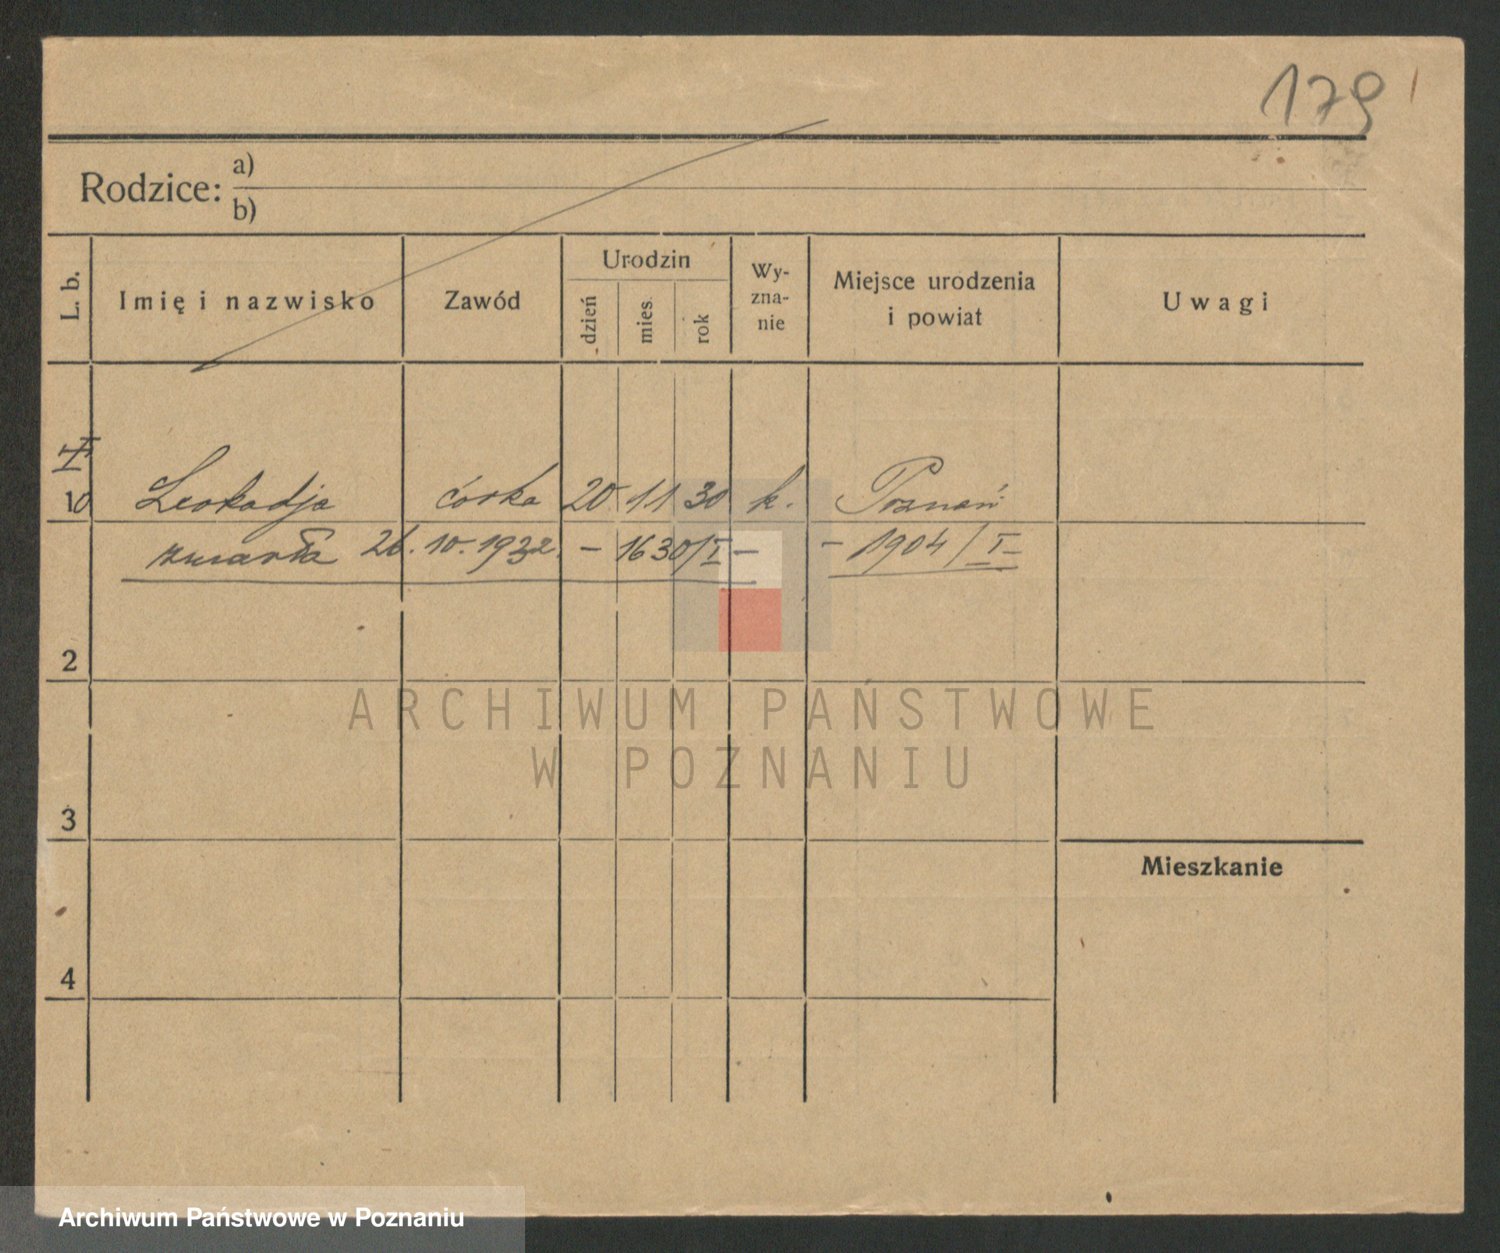 179
Rodzice: a)
b)
L. b.
Imię i nazwisko
Zawód
Urodzin
dzień
mies.
rok
Wy-
zna-
nie
Miejsce urodzenia
i powiat
Uwagi
10 Leokadja córka 20 11 30 k. Poznań
zmarła 26. 10. 1932. – 1630/I – – 1904/I –
2
3
Mieszkanie
4
ARCHIWUM PAŃSTWOWE
W POZNANIU
Archiwum Państwowe w Poznaniu